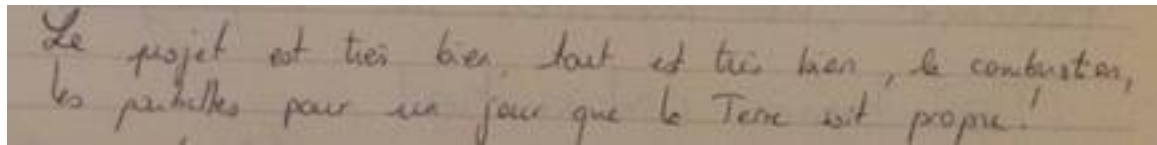 Le projet est très bien, tout est très bien, la combustion,
les poubelles pour un jour que la Terre soit propre!